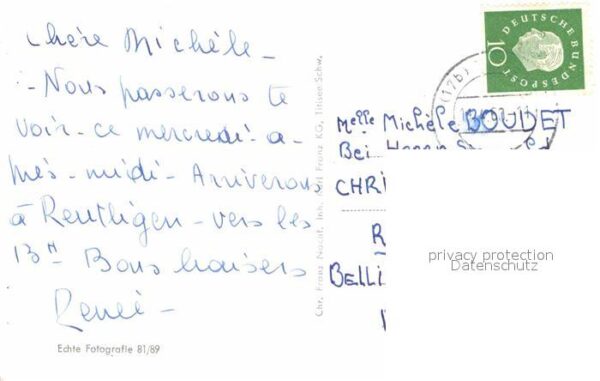 Chère Michèle -
- Nous passerons te
voir - ce mercredi a-
près - midi - Arriverons
à Reutligen - vers les
13H Bons baisers
Renée -
Echte Fotografie 81/89
Chr. Franz Nachf. Inh. Karl Franz KG, Thisen-Schw.
DEUTSCHE BUNDESPOST
10
(17b)
Melle Michèle BOUDET
Bei
CHRI
R
BELLI
privacy protection
Datenschutz